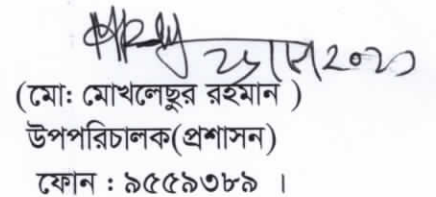 (মো: মোখলেছুর রহমান )
উপপরিচালক(প্রশাসন)
ফোন : ৯৫৫৯৩৮৯ ।